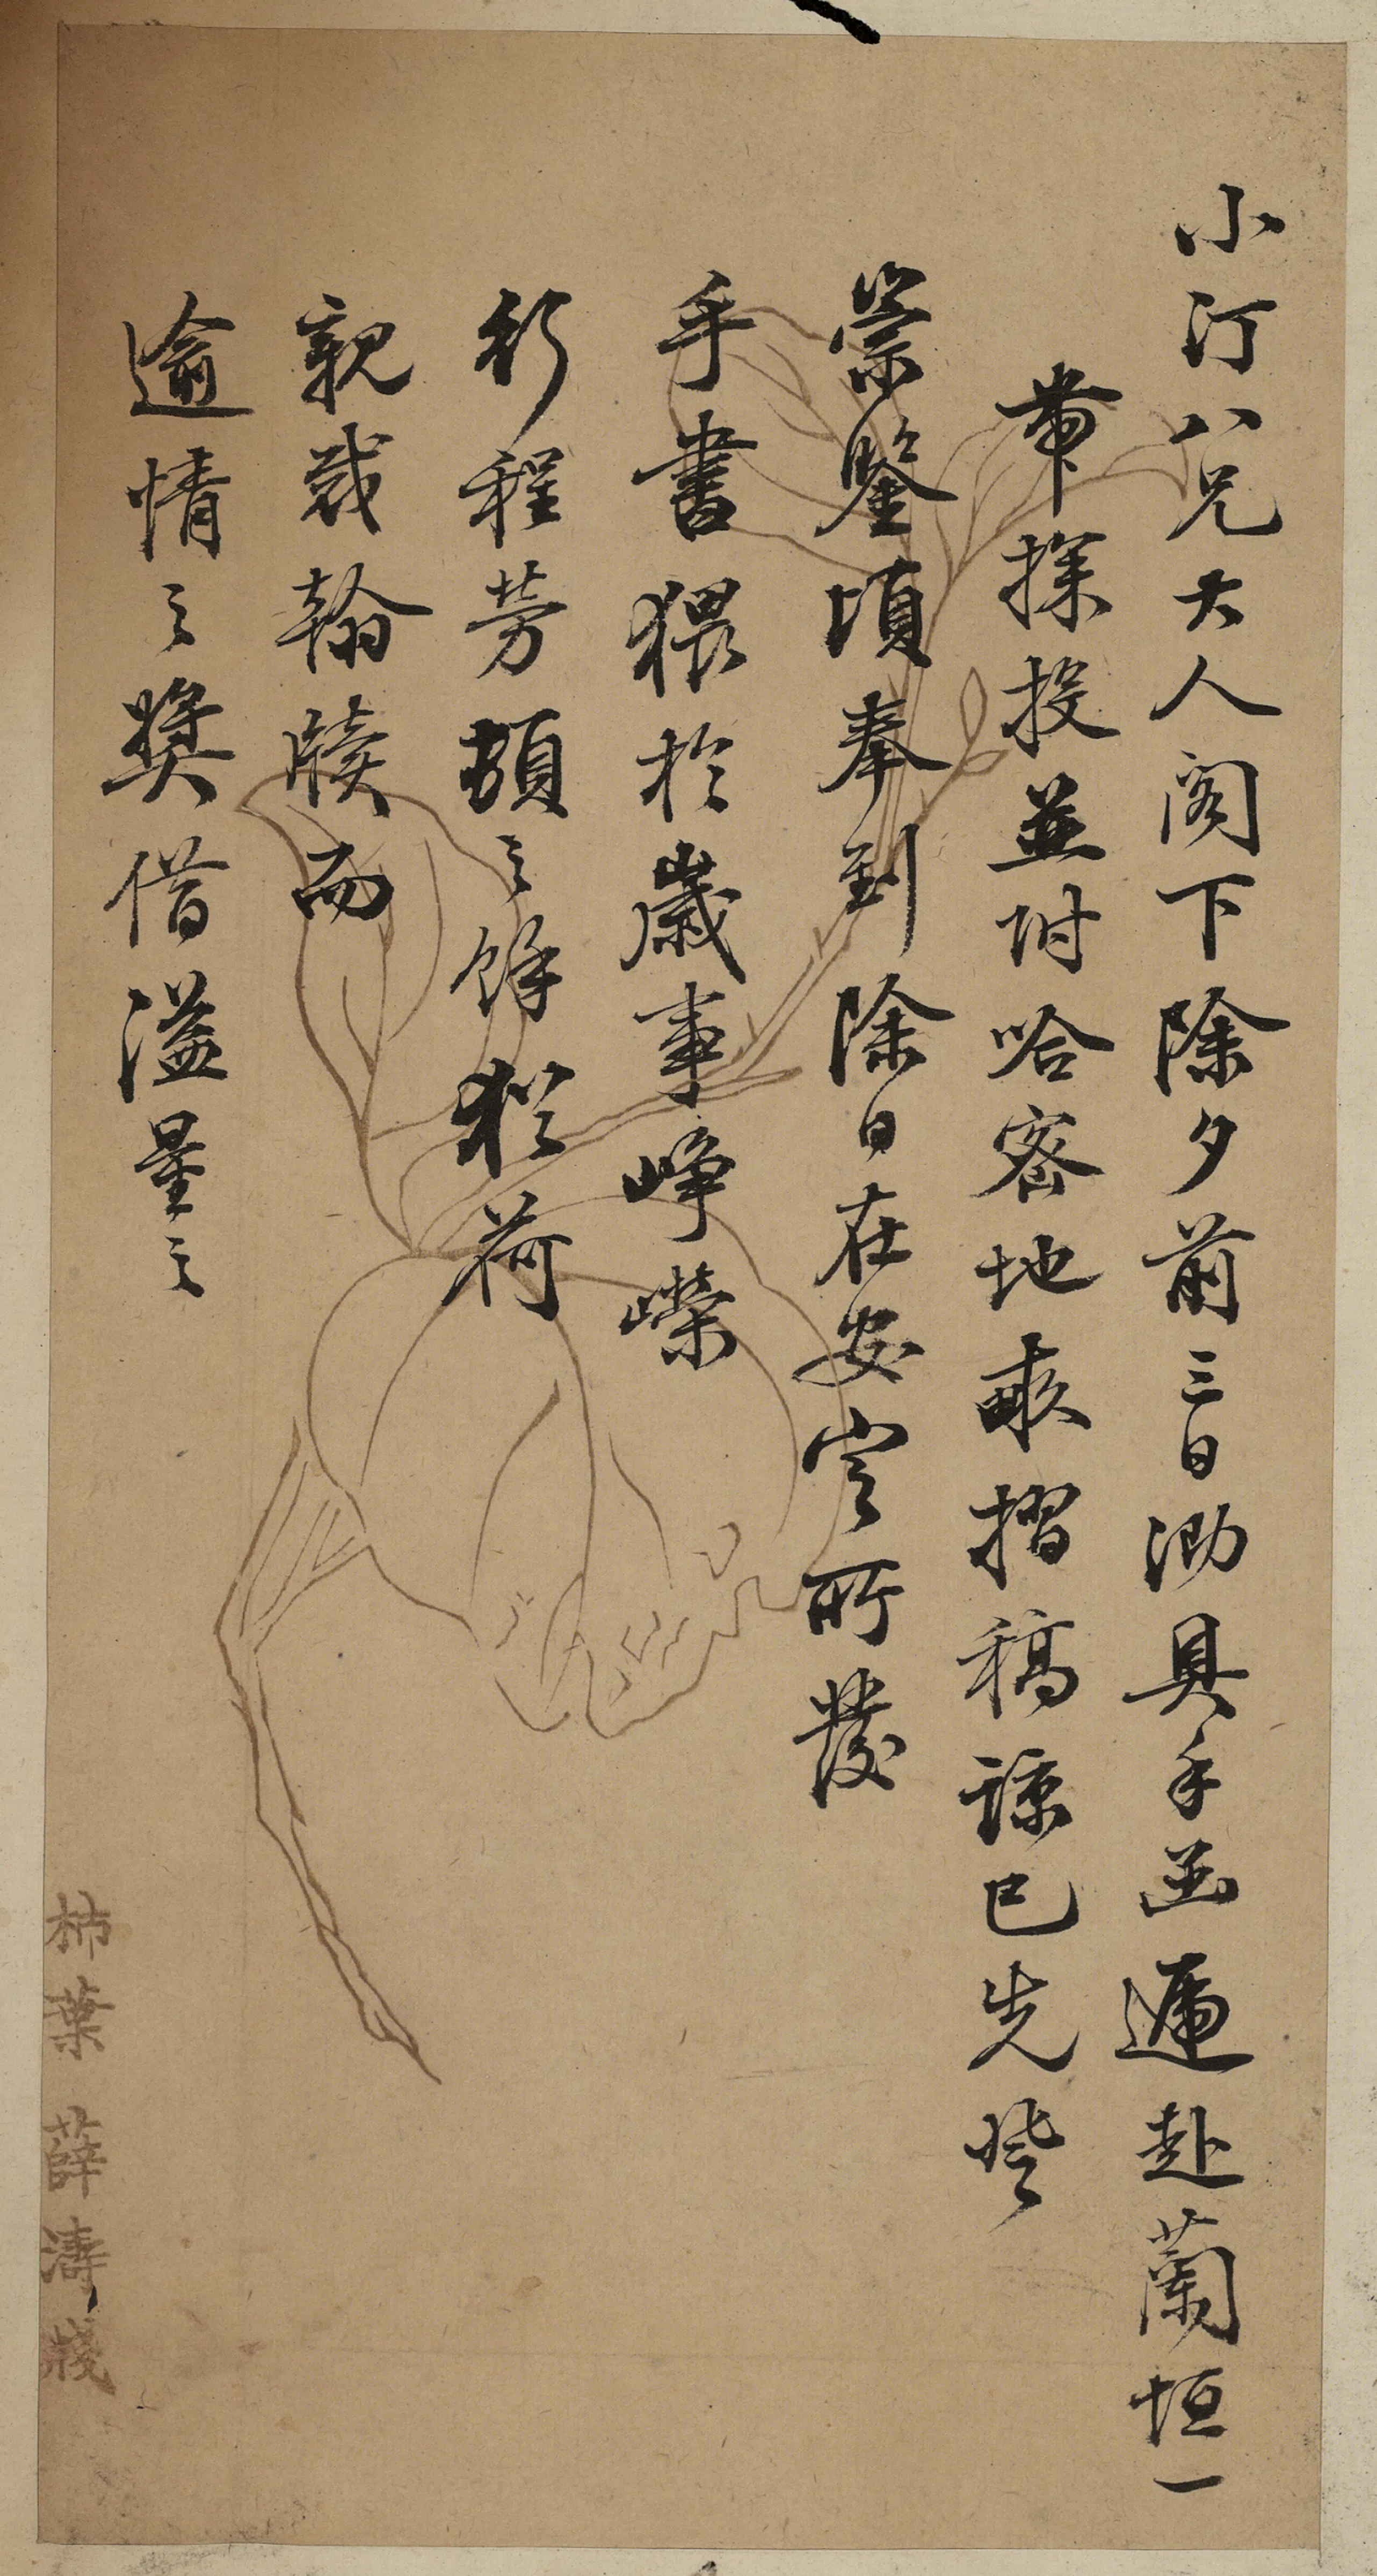 小汀八兄大人阁下除夕前三日泐具手函遞赴蘭垣一
帶探投並附哈密地畝摺稿諒已先登
崇鑒頃奉到除日在安定所發
手書猥於歲事崢嶸
行程勞頓之餘猶荷
親裁翰牘而
逾情之奬借溢量之
柿葉薛濤牋